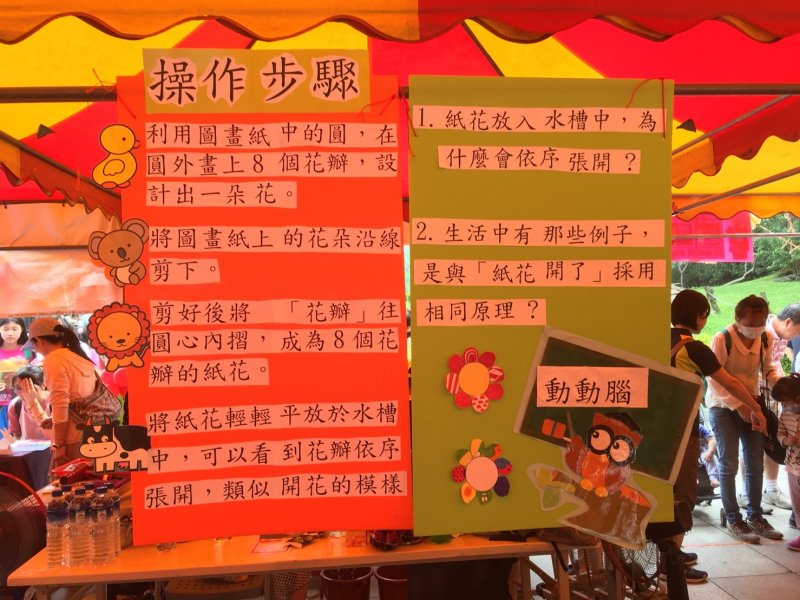 操作步驟
利用圖畫紙中的圓，在
圓外畫上8個花瓣，設
計出一朵花。
將圖畫紙上的花朵沿線
剪下。
剪好後將「花瓣」往
圓心內摺，成為8個花
瓣的紙花。
將紙花輕輕平放於水槽
中，可以看到花瓣依序
張開，類似開花的模樣
1. 紙花放入水槽中，為
什麼會依序張開？
2. 生活中有那些例子，
是與「紙花開了」採用
相同原理？
動動腦